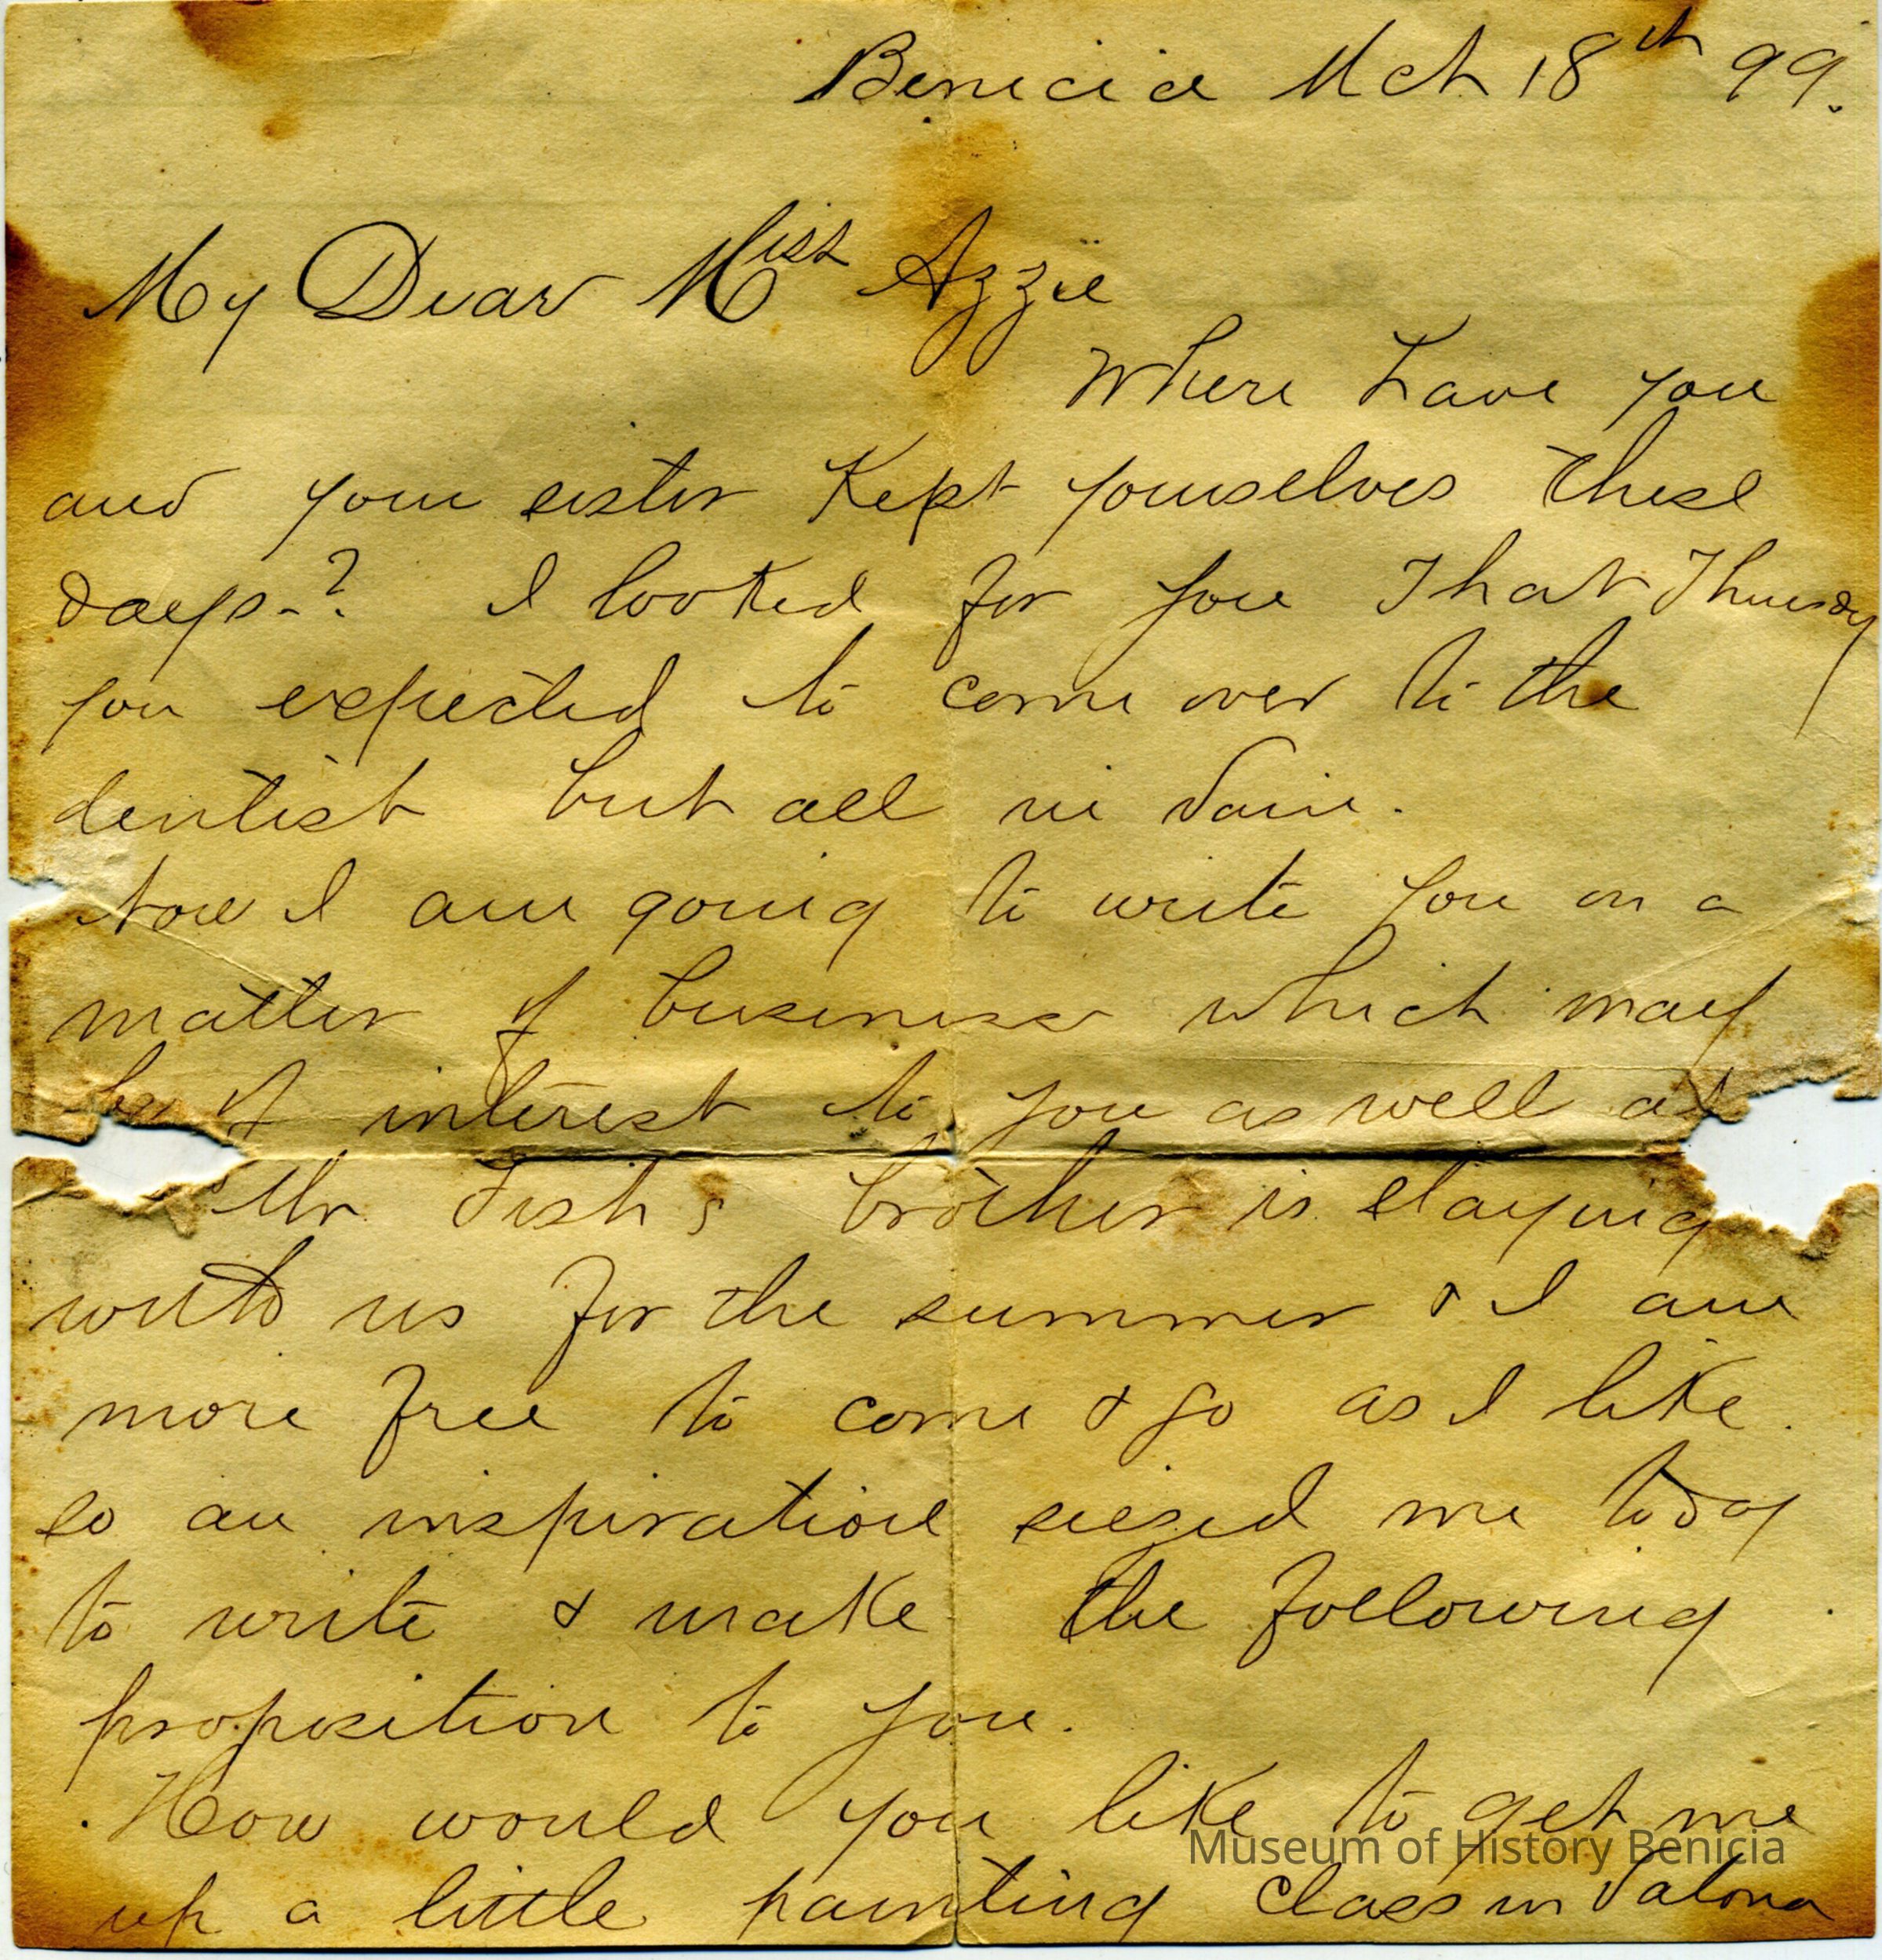 Benicia Mch 18th 99.
My Dear Miss Azzie
Where have you
and your sister kept yourselves these
days-? I looked for you That Thursday
you expected to come over to the
dentist but all in vain.
Now I am going to write you on a
matter of business which may
be of interest to you as well as
Mr Fish's brother is staying
with us for the summer & I am
more free to come & go as I like.
so an inspiration siezed me today
to write & make the following
proposition to you.
How would you like to get me
Museum of History Benicia
up a little painting class in Valona